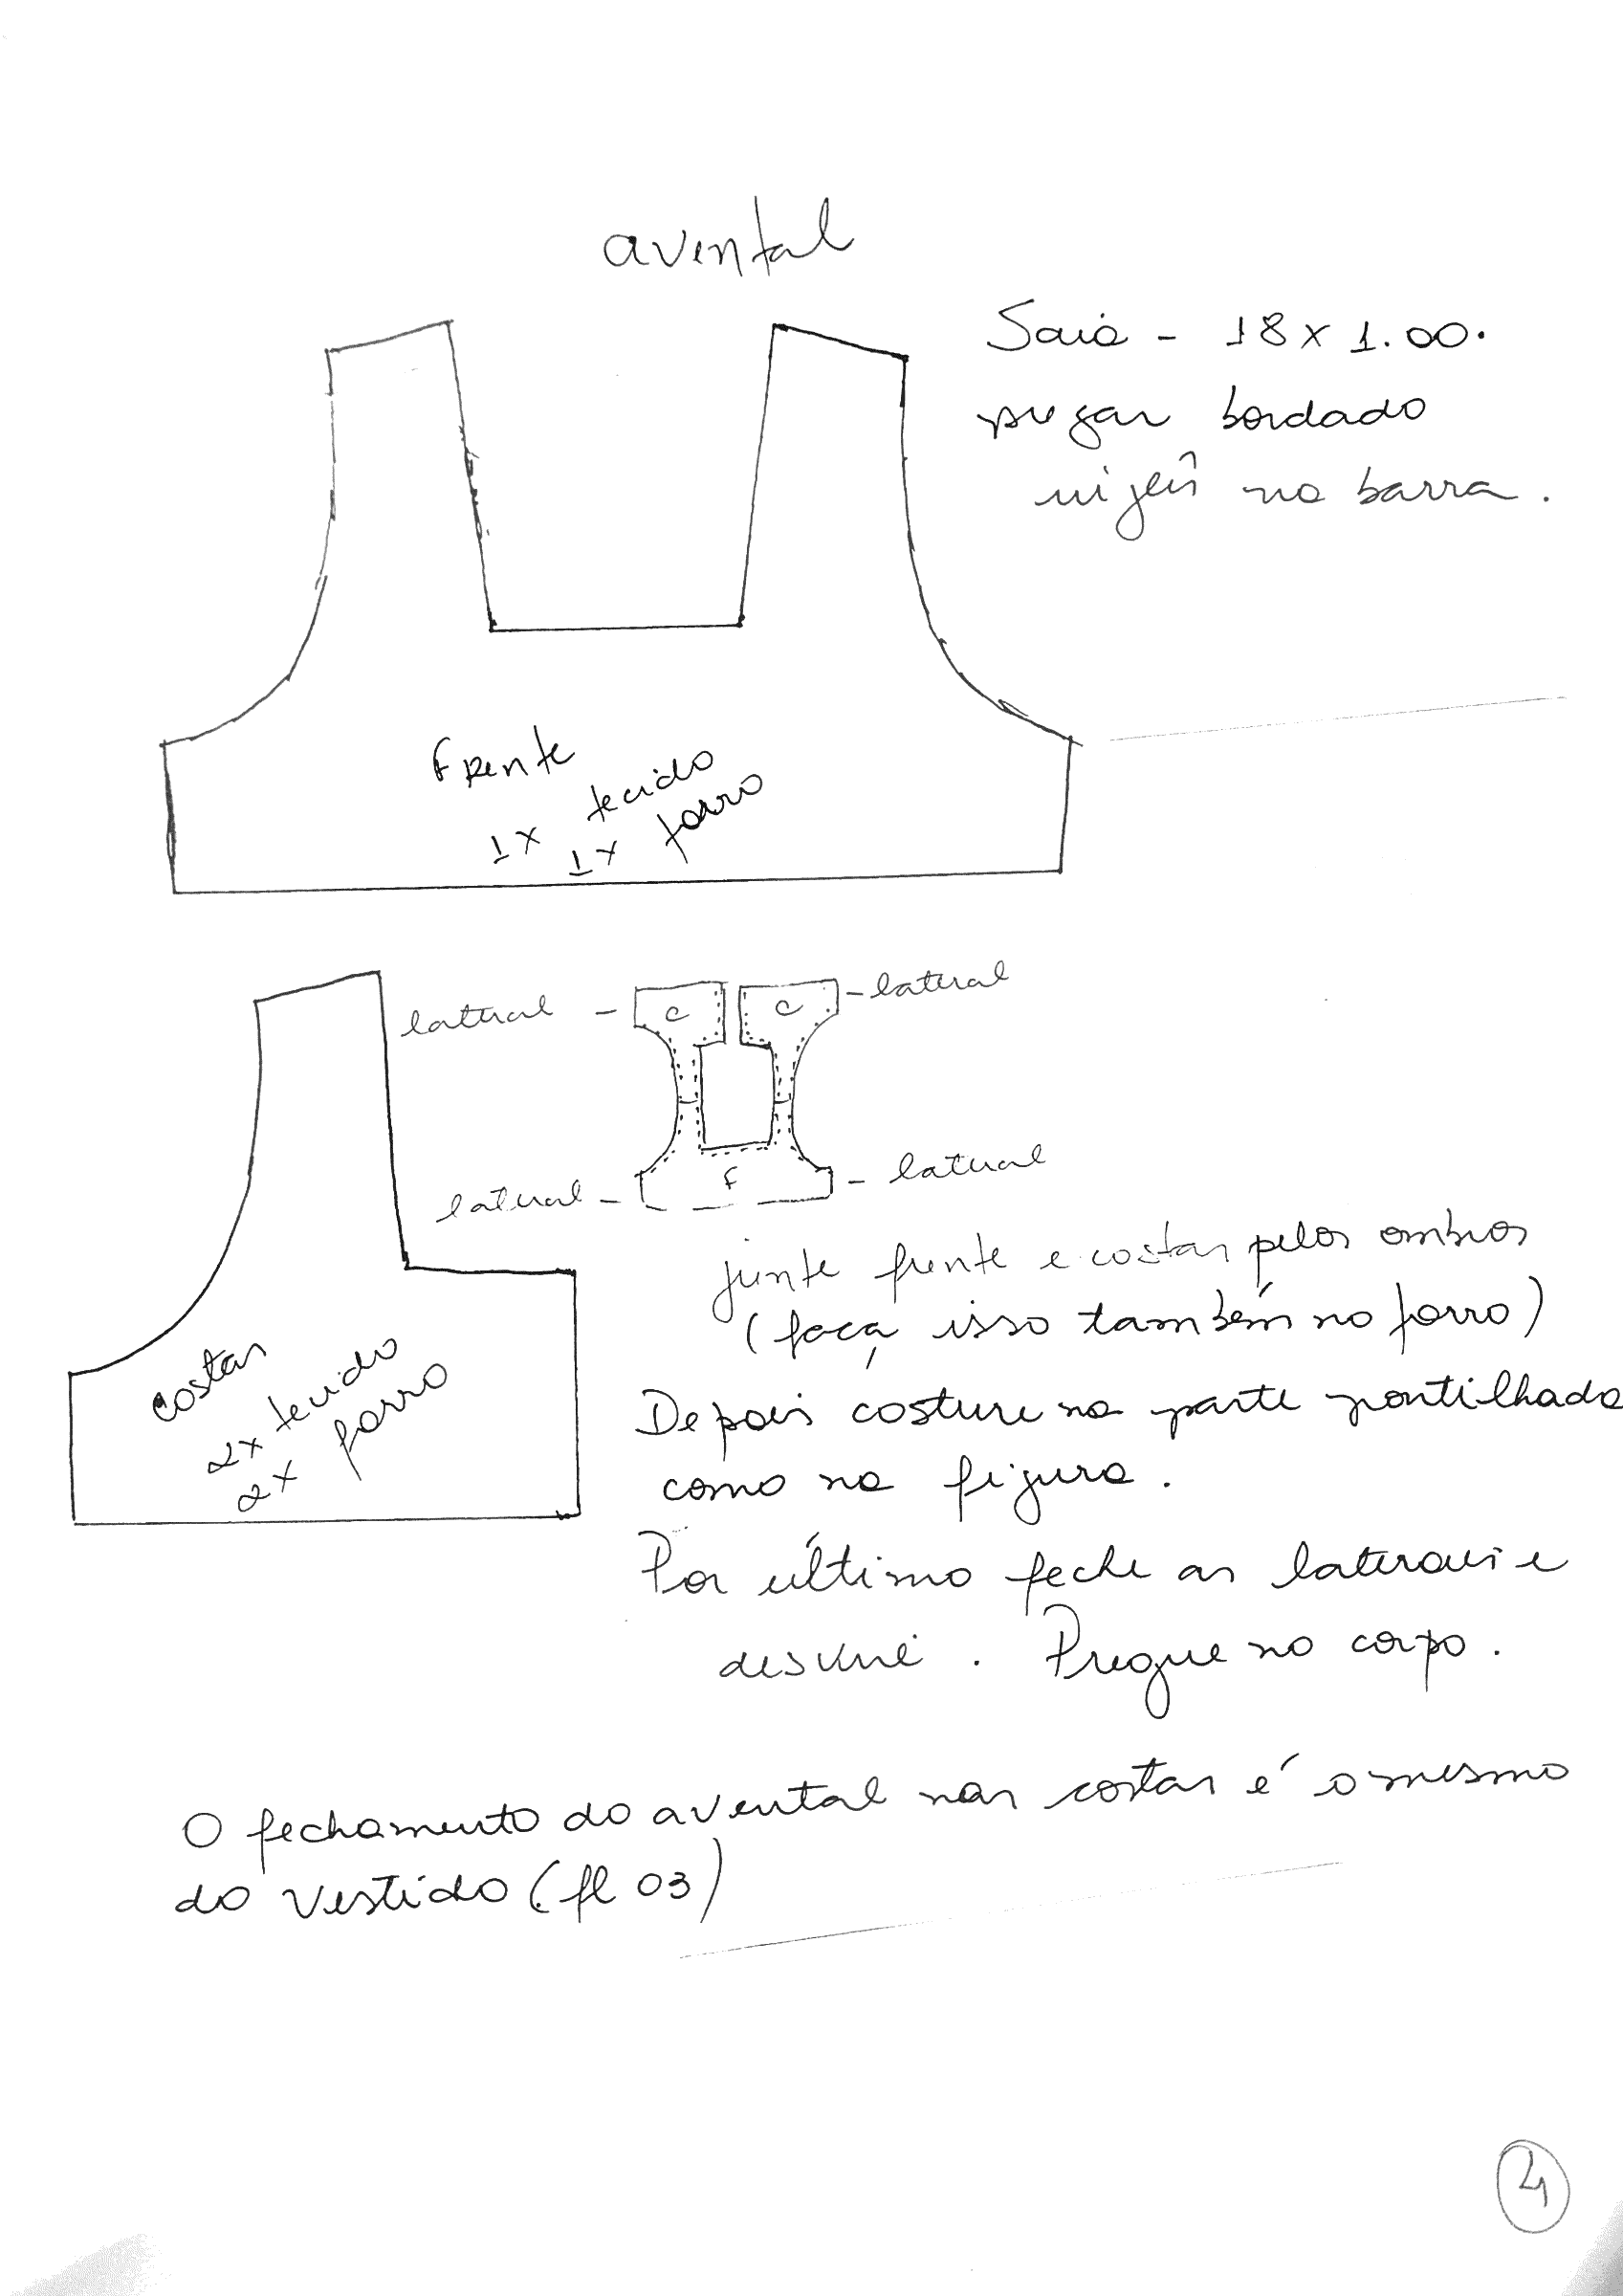 avental
Saia - 18 x 1.00.
pregar bordado
inglês na barra.
Frente
1x tecido
1x forro
lateral - c c - lateral
lateral - f - lateral
costas
2x tecido
2x forro
junte frente e costas pelos ombros
(faça isso também no forro)
Depois costure na parte pontilhada
como na figura.
Por último feche as laterais e
desvire. Pregue no corpo.
O fechamento do avental nas costas é o mesmo
do vestido (fl 03)
4